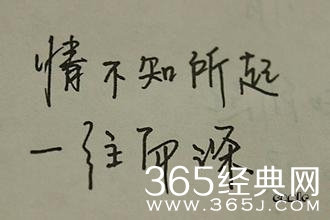 情不知所起
一往而深
365经典网
www.365j.com